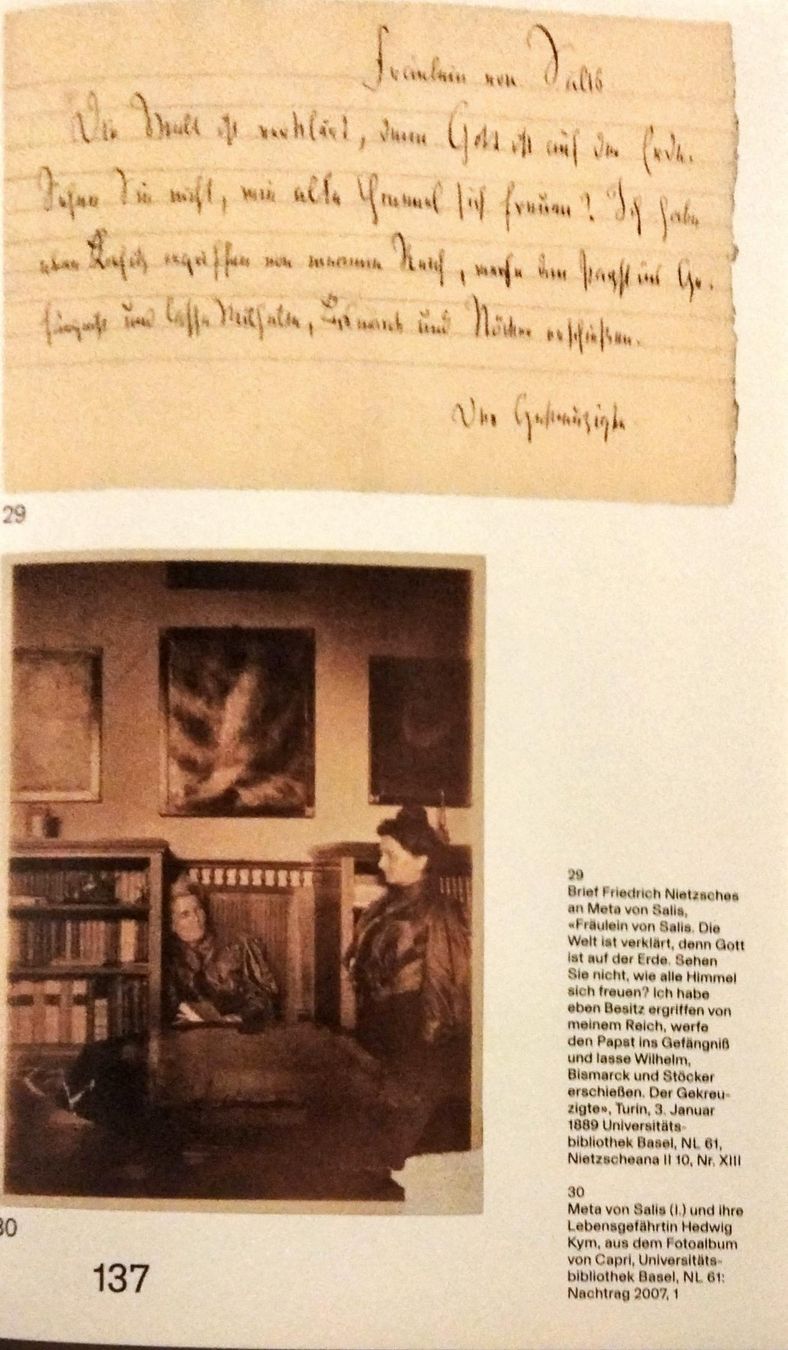 Fräulein von Salis
Die Welt ist verklärt, denn Gott ist auf der Erde.
Sehen Sie nicht, wie alle Himmel sich freuen? Ich habe
eben Besitz ergriffen von meinem Reich, werfe den Papst ins Ge-
fängniß und lasse Wilhelm, Bismarck und Stöcker erschießen.
Der Gekreuzigte
29
30
137
29
Brief Friedrich Nietzsches
an Meta von Salis,
«Fräulein von Salis. Die
Welt ist verklärt, denn Gott
ist auf der Erde. Sehen
Sie nicht, wie alle Himmel
sich freuen? Ich habe
eben Besitz ergriffen von
meinem Reich, werfe
den Papst ins Gefängniß
und lasse Wilhelm,
Bismarck und Stöcker
erschießen. Der Gekreu-
zigte», Turin, 3. Januar
1889 Universitäts-
bibliothek Basel, NL 61,
Nietzscheana II 10, Nr. XIII
30
Meta von Salis (l.) und ihre
Lebensgefährtin Hedwig
Kym, aus dem Fotoalbum
von Capri, Universitäts-
bibliothek Basel, NL 61:
Nachtrag 2007, 1